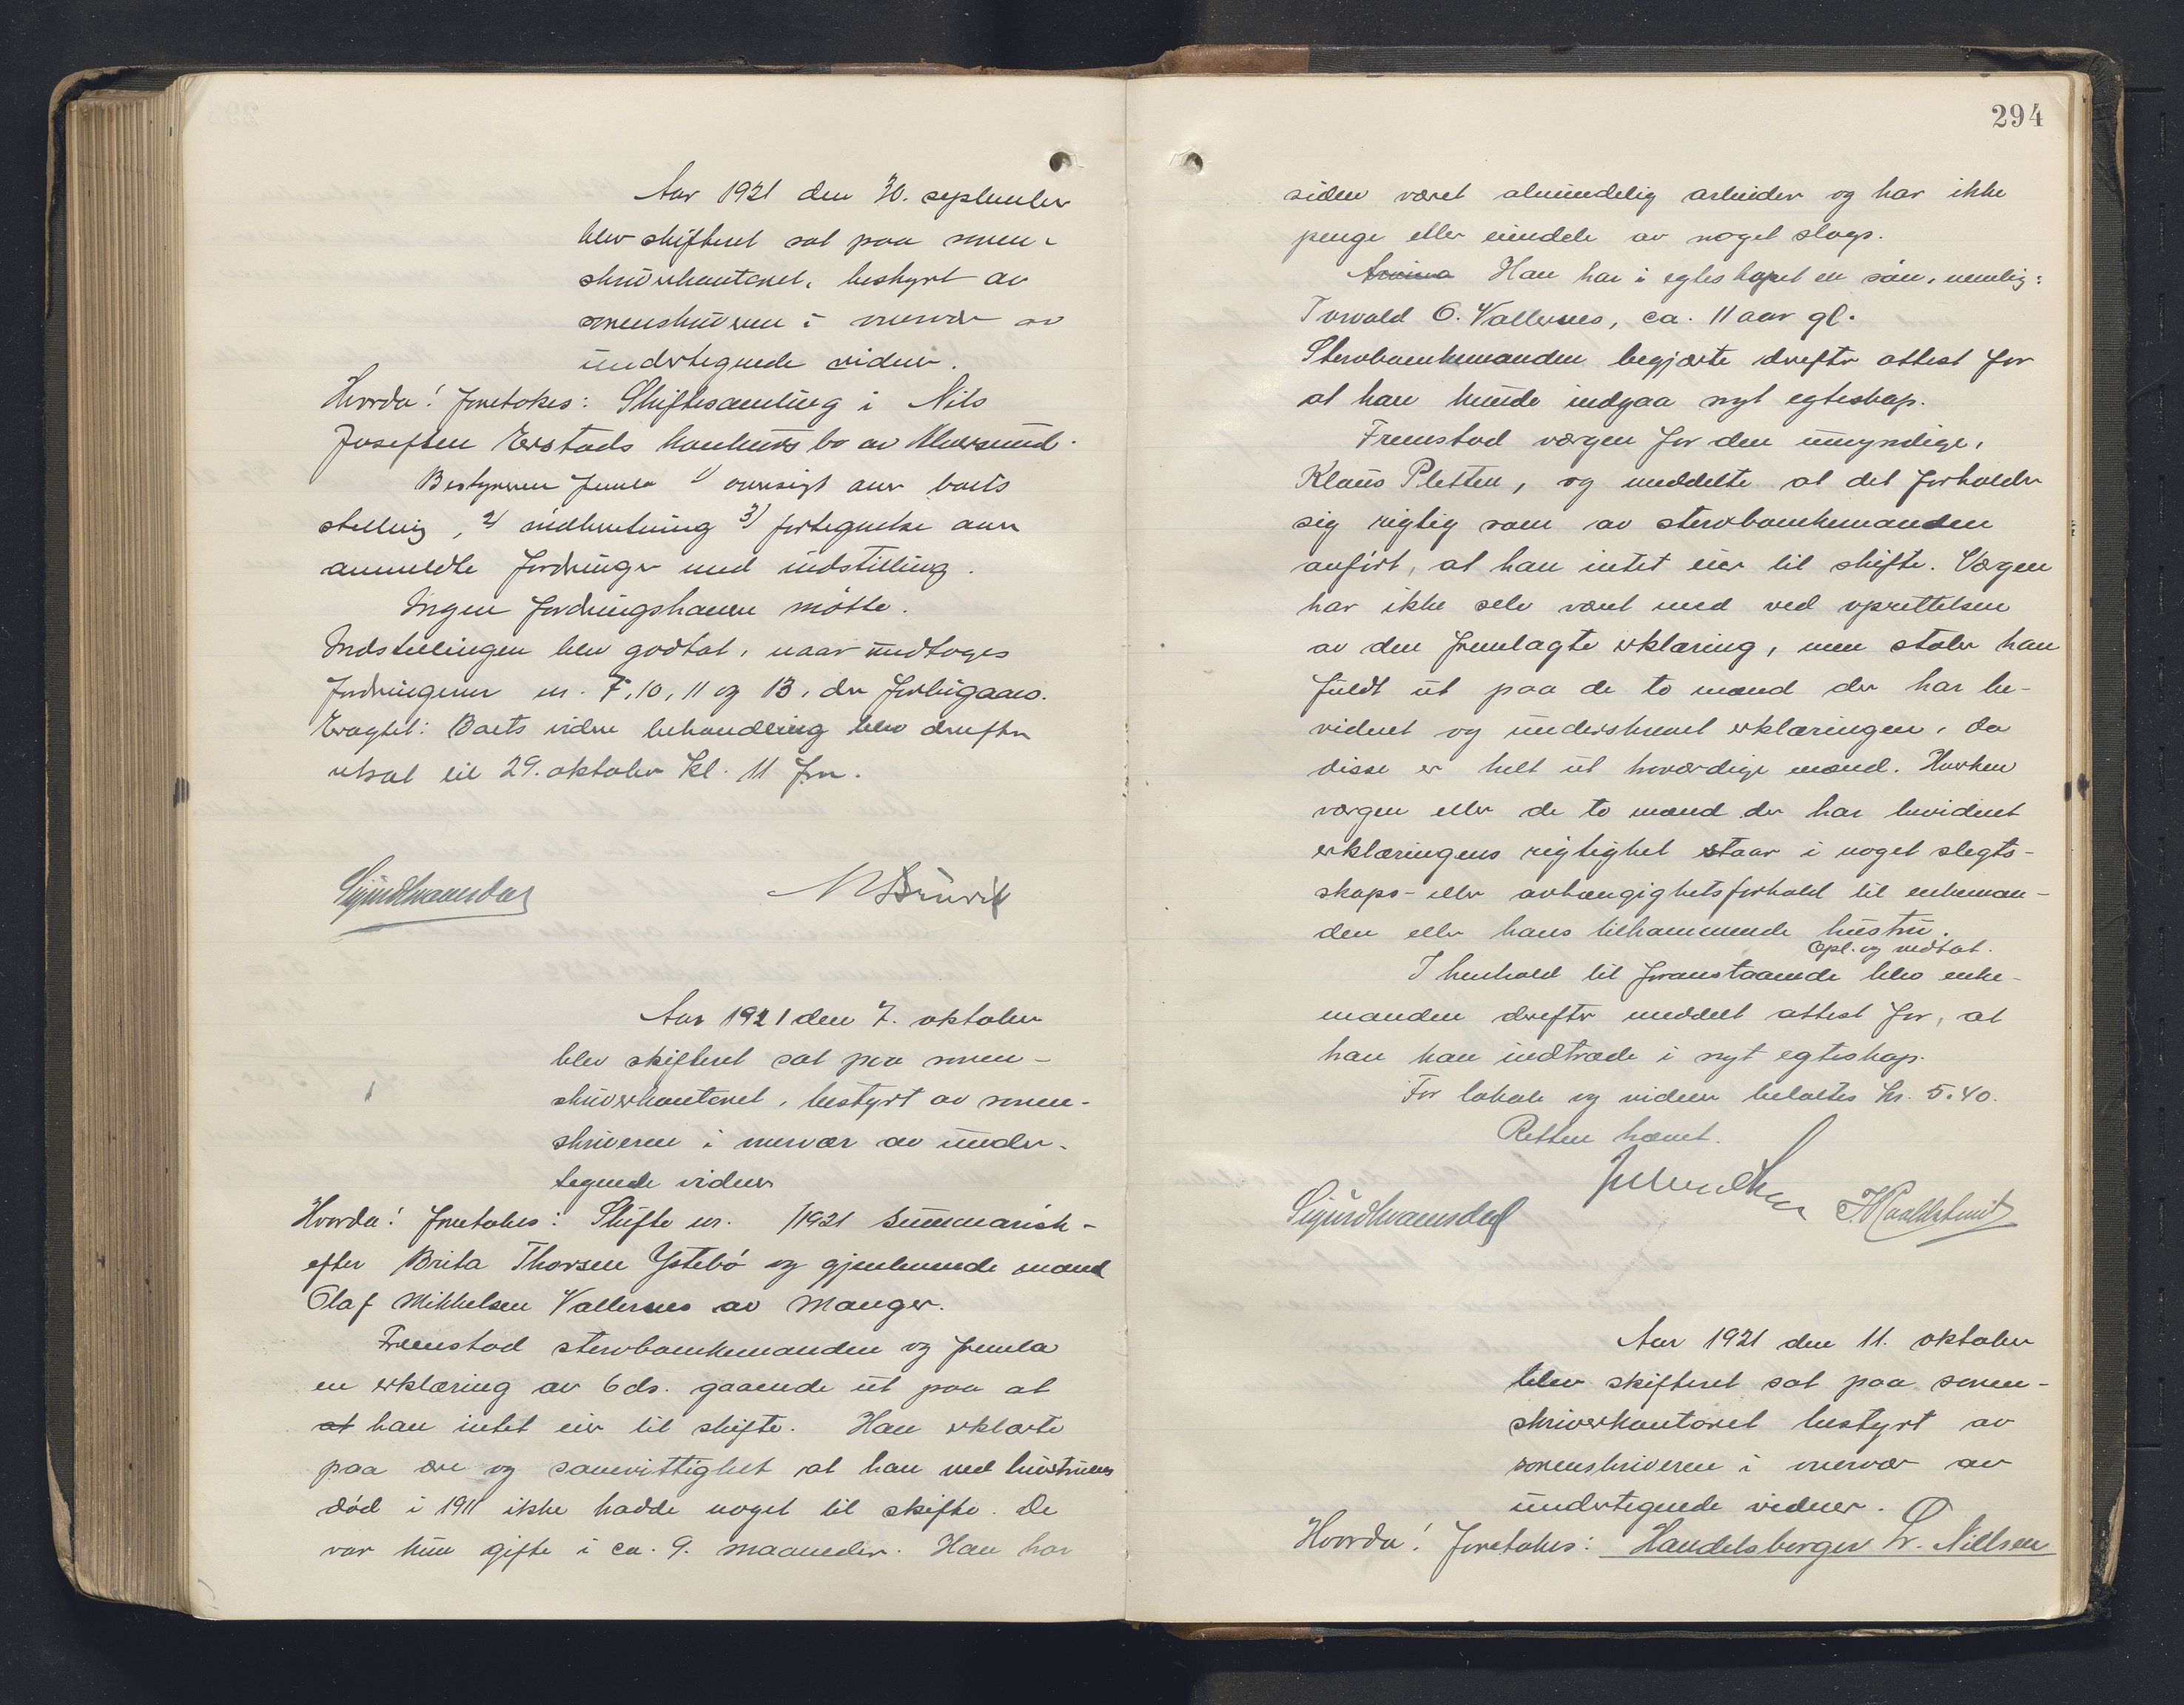 Aar 1921 den 30. september
blev skifteret sat paa soren-
skriverkontoret, bestyrt av
sorenskriveren i nærvær av
undertegnede vidner.
Hvorda! foretokes: Skiftesamling i Nils
Josefsen Erstads konkurs bo av Alversund.
Bestyreren fremla 1) oversigt over boets
stilling, 2) indberetning 3) fortegnelse over
anmeldte fordringer med indstilling.
Ingen fordringshavere møtte.
Indstillingen blev godtat, naar undtoges
fordringerne nr. 7, 10, 11 og 13, der forbigaaes.
Eragtet: Boets videre behandling blev derefter
utsat til 29. oktober kl. 11 fm.
Aar 1921 den 7. oktober
blev skifteret sat paa soren-
skriverkontoret, bestyrt av soren-
skriveren i nærvær av under-
tegnede vidner
Hvorda! foretokes: Skifte nr. /1921 summarisk-
efter Brita Thorsen Ystebö og gjenlevende mand
Olaf Mikkelsen Vallersnes av Manger.
Fremstod stervboenkemanden og fremla
en erklæring av 6 ds. gaaende ut paa at
at han intet eier til skifte. Han erklærte
paa ære og samvittighet at han ved hustruens
död i 1911 ikke hadde noget til skifte. De
var kun gifte i ca. 9. maaneder. Han har
294
siden været almindelig arbeider og har ikke
penge eller eiendele av noget slags.
Han har i egteskapet en sön, nemlig:
Torvald O. Vallersnes, ca. 11 aar gl.
Stervboenkemanden begjærte derefter attest for
at han kunde indgaa nyt egteskap.
Fremstod værgen for den umyndige,
Klaus Pletten, og meddelte at det forholder
sig rigtig som av stervboenkemanden
anfört, at han intet eier til skifte. Værgen
har ikke selv været med ved oprettelsen
av den fremlagte erklæring, men stoler han
fuldt ut paa de to mænd der har be-
vidnet og underskrevet erklæringen, da
disse er helt ut troværdige mænd. Hverken
værgen eller de to mænd der har bevidnet
erklæringens rigtighet staar i noget slegts-
skaps- eller avhængighetsforhold til enkeman-
den eller hans tilkommende hustru.
Opl. og vedtat.
I henhold til foranstaaende blev enke-
manden derefter meddelt attest for, at
han kan indtræde i nyt egteskap.
For lokale og vidner betaltes kr. 5.40.
Retten hævet.
Aar 1921 den 11. oktober
blev skifteret sat paa soren-
skriverkontoret bestyrt av
sorenskriveren i nærvær av
undertegnede vidner.
Hvorda! foretokes: Handelsborger Dr. Nillsen